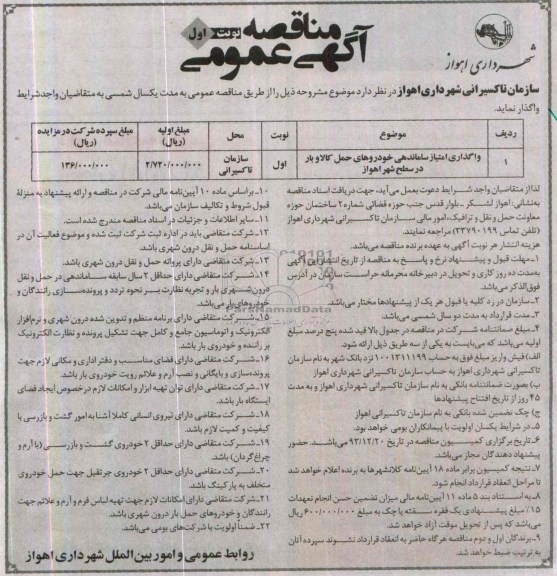 آگهی مناقصه عمومی
نوبت اول
شهرداری اهواز
سازمان تاکسیرانی شهرداری اهواز در نظر دارد موضوع مشروحه ذیل را از طریق مناقصه عمومی به مدت یکسال شمسی به متقاضیان واجد شرایط
واگذار نماید.
ردیف موضوع نوبت محل مبلغ اولیه (ریال) مبلغ سپرده شرکت در مزایده (ریال)
۱ واگذاری امتیاز ساماندهی خودروهای حمل کالا و بار در سطح شهر اهواز اول سازمان تاکسیرانی ۲/۷۲۰/۰۰۰/۰۰۰ ۱۳۶/۰۰۰/۰۰۰
لذا از متقاضیان واجد شرایط دعوت بعمل می‌آید، جهت دریافت اسناد مناقصه
به نشانی: اهواز لشگر ـ بلوار قدس جنب حوزه قضائی شماره ۲ ساختمان حوزه
معاونت حمل و نقل و ترافیک، امور مالی سازمان تاکسیرانی شهرداری اهواز
(تلفن تماس ۳۳۷۹۰۱۹۹) مراجعه نمایند.
هزینه انتشار هر نوبت آگهی به عهده برنده مناقصه می‌باشد.
۱ـ مهلت قبول و پیشنهاد نرخ و پاسخ به مناقصه از تاریخ انتشار این آگهی
به مدت ده روز کاری و تحویل در دبیرخانه محرمانه حراست سازمان در آدرس
فوق الذکر می‌باشد.
۲ـ سازمان در رد کلیه یا قبول هر یک از پیشنهادها مختار می‌باشد.
۳ـ مدت قرارداد به مدت دو سال شمسی می‌باشد.
۴ـ مبلغ ضمانتنامه شرکت در مناقصه در جدول بالا قید شده پنج درصد مبلغ
اولیه می‌باشد که می‌بایست به یکی از سه طریق ذیل ارائه شود.
الف) فیش واریز مبلغ فوق به حساب ۱۰۰۱۳۱۱۱۹۹ نزد بانک شهر به نام سازمان
تاکسیرانی شهرداری اهواز به حساب سازمان تاکسیرانی شهرداری اهواز
ب) بصورت ضمانتنامه بانکی به نام سازمان تاکسیرانی شهرداری اهواز و به مدت
۴۵ روز از تاریخ افتتاح پیشنهادها
ج) چک تضمین شده بانکی به نام سازمان تاکسیرانی اهواز
۵ـ در شرایط یکسان اولویت با پیمانکاران بومی خواهد بود.
۶ـ تاریخ برگزاری کمیسیون مناقصه در تاریخ ۹۳/۱۲/۲۰ می‌باشد. حضور
پیشنهاد دهندگان مجاز می‌باشد.
۷ـ نتیجه کمیسیون برابر ماده ۱۸ آیین‌نامه کلانشهرها به برنده اعلام خواهد شد
تا مراحل انعقاد قرارداد انجام شود.
۸ـ به استناد بند ۵ ماده ۱۱ آیین‌نامه مالی میزان تضمین حسن انجام تعهدات
۱۵٪ مبلغ پیشنهادی یک فقره سفته یا چک به مبلغ ۶۰۰/۰۰۰/۰۰۰ ریال
می‌باشد که پس از تحویل موقت آزاد خواهد شد.
۹ـ برندگان اول و دوم مناقصه هرگاه حاضر به انعقاد قرارداد نشوند سپرده آنان
به ترتیب ضبط خواهد شد.
۱۰ـ براساس ماده ۱۰ آیین‌نامه مالی شرکت در مناقصه و ارائه پیشنهاد به منزله
قبول شروط و تکالیف سازمان می‌باشد.
۱۱ـ سایر اطلاعات و جزئیات در اسناد مناقصه مندرج شده است.
۱۲ـ شرکت متقاضی باید در اداره ثبت شرکت ثبت شده و موضوع فعالیت آن در
اساسنامه حمل و نقل درون شهری باشد.
۱۳ـ شرکت متقاضی دارای پروانه حمل و نقل درون شهری باشد.
۱۴ـ شرکت متقاضی دارای حداقل ۲ سال سابقه ساماندهی در حمل و نقل
درون شهری بار و تجربه نظارت بر نحوه تردد و پرونده‌سازی رانندگان و
خودروهای بار می‌باشد.
۱۵ـ شرکت متقاضی دارای برنامه منظم و تدوین شده درون شهری و نرم‌افزار
الکترونیک و اتوماسیون جامع و کامل جهت تشکیل پرونده و نظارت الکترونیک
بر راننده و خودروی بار باشد.
۱۶ـ شرکت متقاضی دارای فضای مناسب و دفتر اداری و مکانی لازم جهت
پرونده‌سازی و بایگانی و نصب آرم و علائم رویت خودروی بار باشد.
۱۷ـ شرکت متقاضی دارای توان تهیه ابزار و امکانات لازم درخصوص ایجاد فضای
ایستگاه بار باشد.
۱۸ـ شرکت متقاضی دارای نیروی انسانی کاملا آشنا به امور گشت و بازرسی با
کیفیت و کمیت لازم باشد.
۱۹ـ شرکت متقاضی دارای حداقل ۲ خودروی گشت و بازرسی (با آرم و
چراغ گردان) باشد.
۲۰ـ شرکت متقاضی دارای حداقل ۲ خودروی جرثقیل جهت حمل خودروی
متخلف به پارکینگ باشد.
۲۱ـ شرکت متقاضی دارای امکانات لازم جهت تهیه لباس فرم و آرم و علائم جهت
رانندگان و خودروهای حمل بار درون شهری باشد.
۲۲ـ ضمناً اولویت با شرکت‌های بومی می‌باشد.
روابط عمومی و امور بین الملل شهرداری اهواز
ParsNamadData